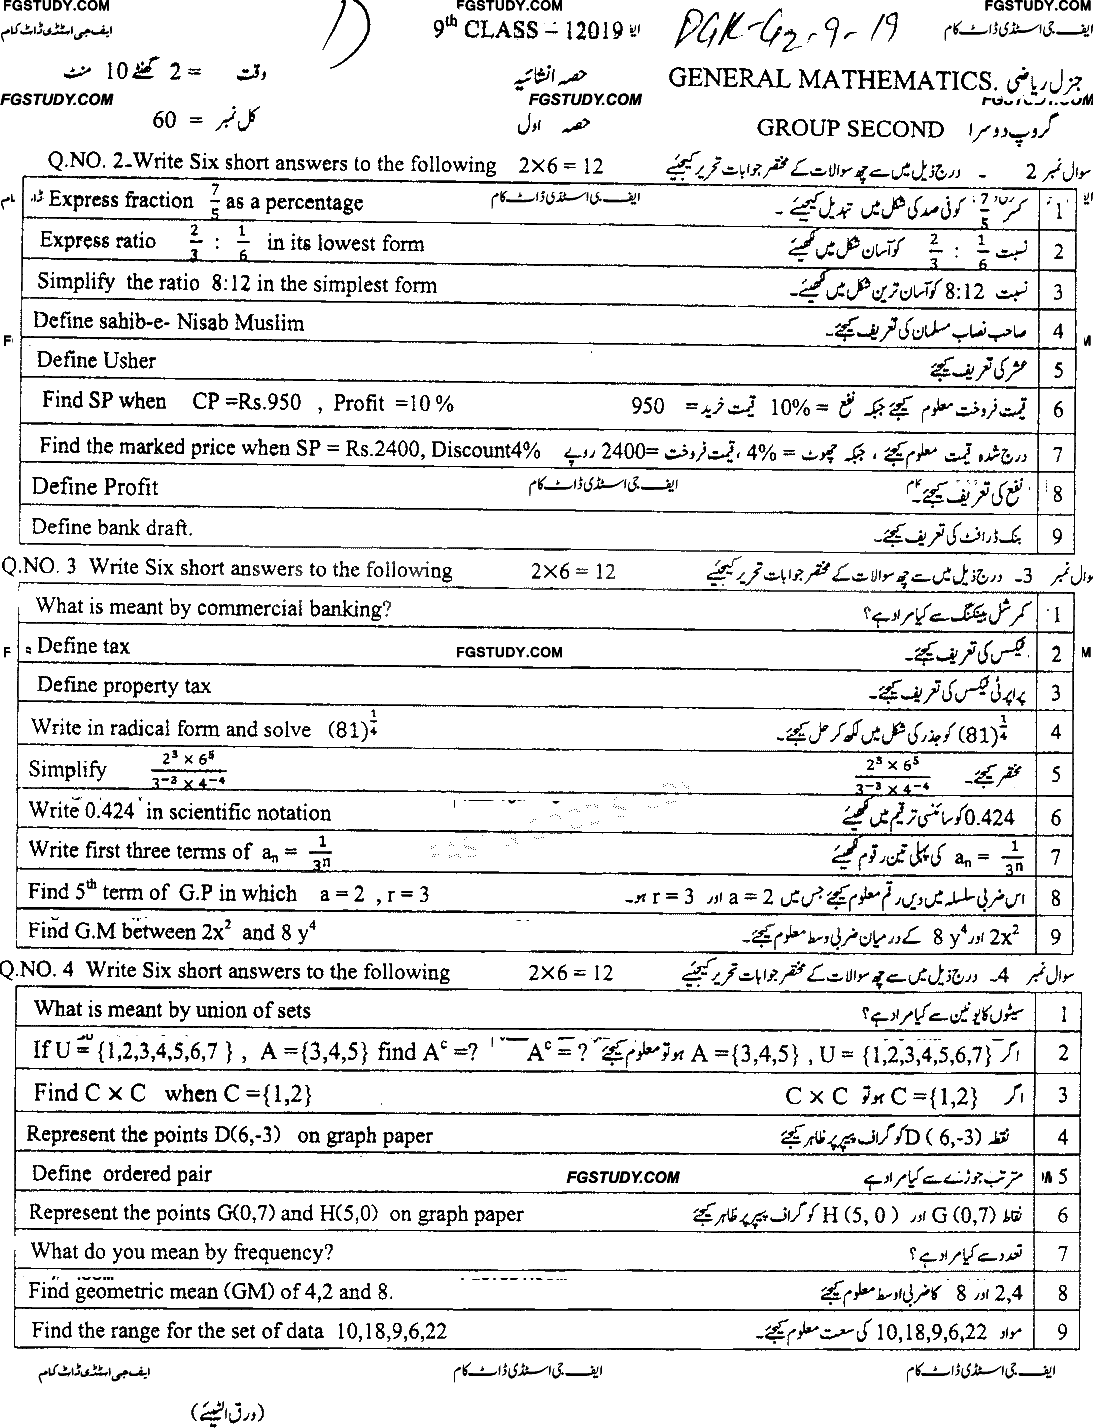 FGSTUDY.COM FGSTUDY.COM FGSTUDY.COM
ایف جی اسٹڈی ڈاٹ کام 1) 9th CLASS – 12019 DGK-G2-9-19 ایف جی اسٹڈی ڈاٹ کام
وقت = 2 گھنٹے 10 منٹ حصہ انشائیہ GENERAL MATHEMATICS. جنرل ریاضی
FGSTUDY.COM FGSTUDY.COM FGSTUDY.COM
کل نمبر = 60 حصہ اول GROUP SECOND گروپ دوسرا
Q.NO. 2-Write Six short answers to the following 2×6 = 12 سوال نمبر 2 ۔ درج ذیل میں سے چھ سوالات کے مختصر جوابات تحریر کیجئیے
Express fraction 7/5 as a percentage ایف جی اسٹڈی ڈاٹ کام کسر 7/5 کو فی صد کی شکل میں تبدیل کیجیئے ۔ 1
Express ratio 2/3 : 1/6 in its lowest form نسبت 1/6 : 2/3 کو آسان شکل میں لکھیئے 2
Simplify the ratio 8:12 in the simplest form نسبت 8:12 کو آسان ترین شکل میں لکھیئے۔ 3
Define sahib-e- Nisab Muslim صاحب نصاب مسلمان کی تعریف کیجئے۔ 4
F M
Define Usher عشر کی تعریف کیجئے 5
Find SP when CP =Rs.950 , Profit =10% قیمت فروخت معلوم کیجئے جبکہ نفع = 10% قیمت خرید = 950 6
Find the marked price when SP = Rs.2400, Discount4% درج شدہ قیمت معلوم کیجئے ، جبکہ چھوٹ = 4% ، قیمت فروخت =2400 روپے 7
Define Profit ایف جی اسٹڈی ڈاٹ کام نفع کی تعریف کیجئے۔ 8
Define bank draft. بنک ڈرافٹ کی تعریف کیجئے۔ 9
Q.NO. 3 Write Six short answers to the following 2×6 = 12 سوال نمبر 3۔ درج ذیل میں سے چھ سوالات کے مختصر جوابات تحریر کیجئیے
What is meant by commercial banking? کمرشل بینکنگ سے کیا مراد ہے؟ 1
F Define tax FGSTUDY.COM ٹیکس کی تعریف کیجئے۔ 2 M
Define property tax پراپرٹی ٹیکس کی تعریف کیجئے۔ 3
Write in radical form and solve (81)^1/4 (81)^1/4 کو جذر کی شکل میں لکھ کر حل کیجئے۔ 4
Simplify 2³ × 6⁵ / 3⁻³ × 4⁻⁴ مختصر کیجئے۔ 2³ × 6⁵ / 3⁻³ × 4⁻⁴ 5
Write 0.424 in scientific notation 0.424 کو سائنسی ترقیم میں لکھیئے 6
Write first three terms of aₙ = 1/3ⁿ aₙ = 1/3ⁿ کی پہلی تین رقوم لکھیئے 7
Find 5th term of G.P in which a = 2 , r = 3 اس ضربی سلسلہ میں ویں رقم معلوم کیجئے جس میں a = 2 اور r = 3 ہو۔ 8
Find G.M between 2x² and 8 y⁴ 2x² اور 8 y⁴ کے درمیان ضربی وسط معلوم کیجئے۔ 9
Q.NO. 4 Write Six short answers to the following 2×6 = 12 سوال نمبر 4۔ درج ذیل میں سے چھ سوالات کے مختصر جوابات تحریر کیجئیے
What is meant by union of sets سیٹوں کا یونین سے کیا مراد ہے؟ 1
If U = {1,2,3,4,5,6,7 } , A = {3,4,5} find Aᶜ =? اگر U = {1,2,3,4,5,6,7} , A = {3,4,5} ہو تو معلوم کیجئے Aᶜ = ? 2
Find C × C when C ={1,2} اگر C ={1,2} ہو تو C × C 3
Represent the points D(6,-3) on graph paper نقطہ D ( 6,-3) کو گراف پیپر پر ظاہر کیجئے 4
Define ordered pair FGSTUDY.COM مترتب جوڑے سے کیا مراد ہے 5
Represent the points G(0,7) and H(5,0) on graph paper نقاط G (0,7) اور H (5, 0 ) کو گراف پیپر پر ظاہر کیجئے 6
What do you mean by frequency? تعدد سے کیا مراد ہے ؟ 7
Find geometric mean (GM) of 4,2 and 8. 2,4 اور 8 کا ضربی اوسط معلوم کیجئے 8
Find the range for the set of data 10,18,9,6,22 مواد 10,18,9,6,22 کی سعت معلوم کیجئے۔ 9
ایف جی اسٹڈی ڈاٹ کام ایف جی اسٹڈی ڈاٹ کام ایف جی اسٹڈی ڈاٹ کام
(ورق الٹیئے)